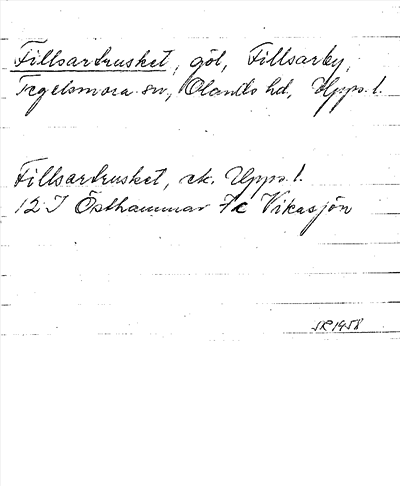 Fillsarkrusket, göl, Fillsarby,
Tegelsmora sn, Olands hd, Upps. l.
Fillsarkrusket, ek. Upps. l.
12 I Östhammar 7c Vikasjön
SR 1958